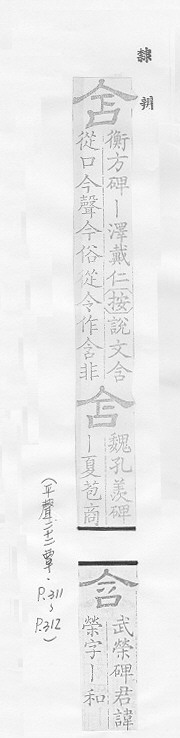 隸
含
衡方碑｜澤戴仁按說文含
從口今聲今俗從令作含非
含
魏孔羨碑
｜夏苞商
含
武榮碑君諱
榮字｜和
(平聲二十二覃．
P.311~
P.312)